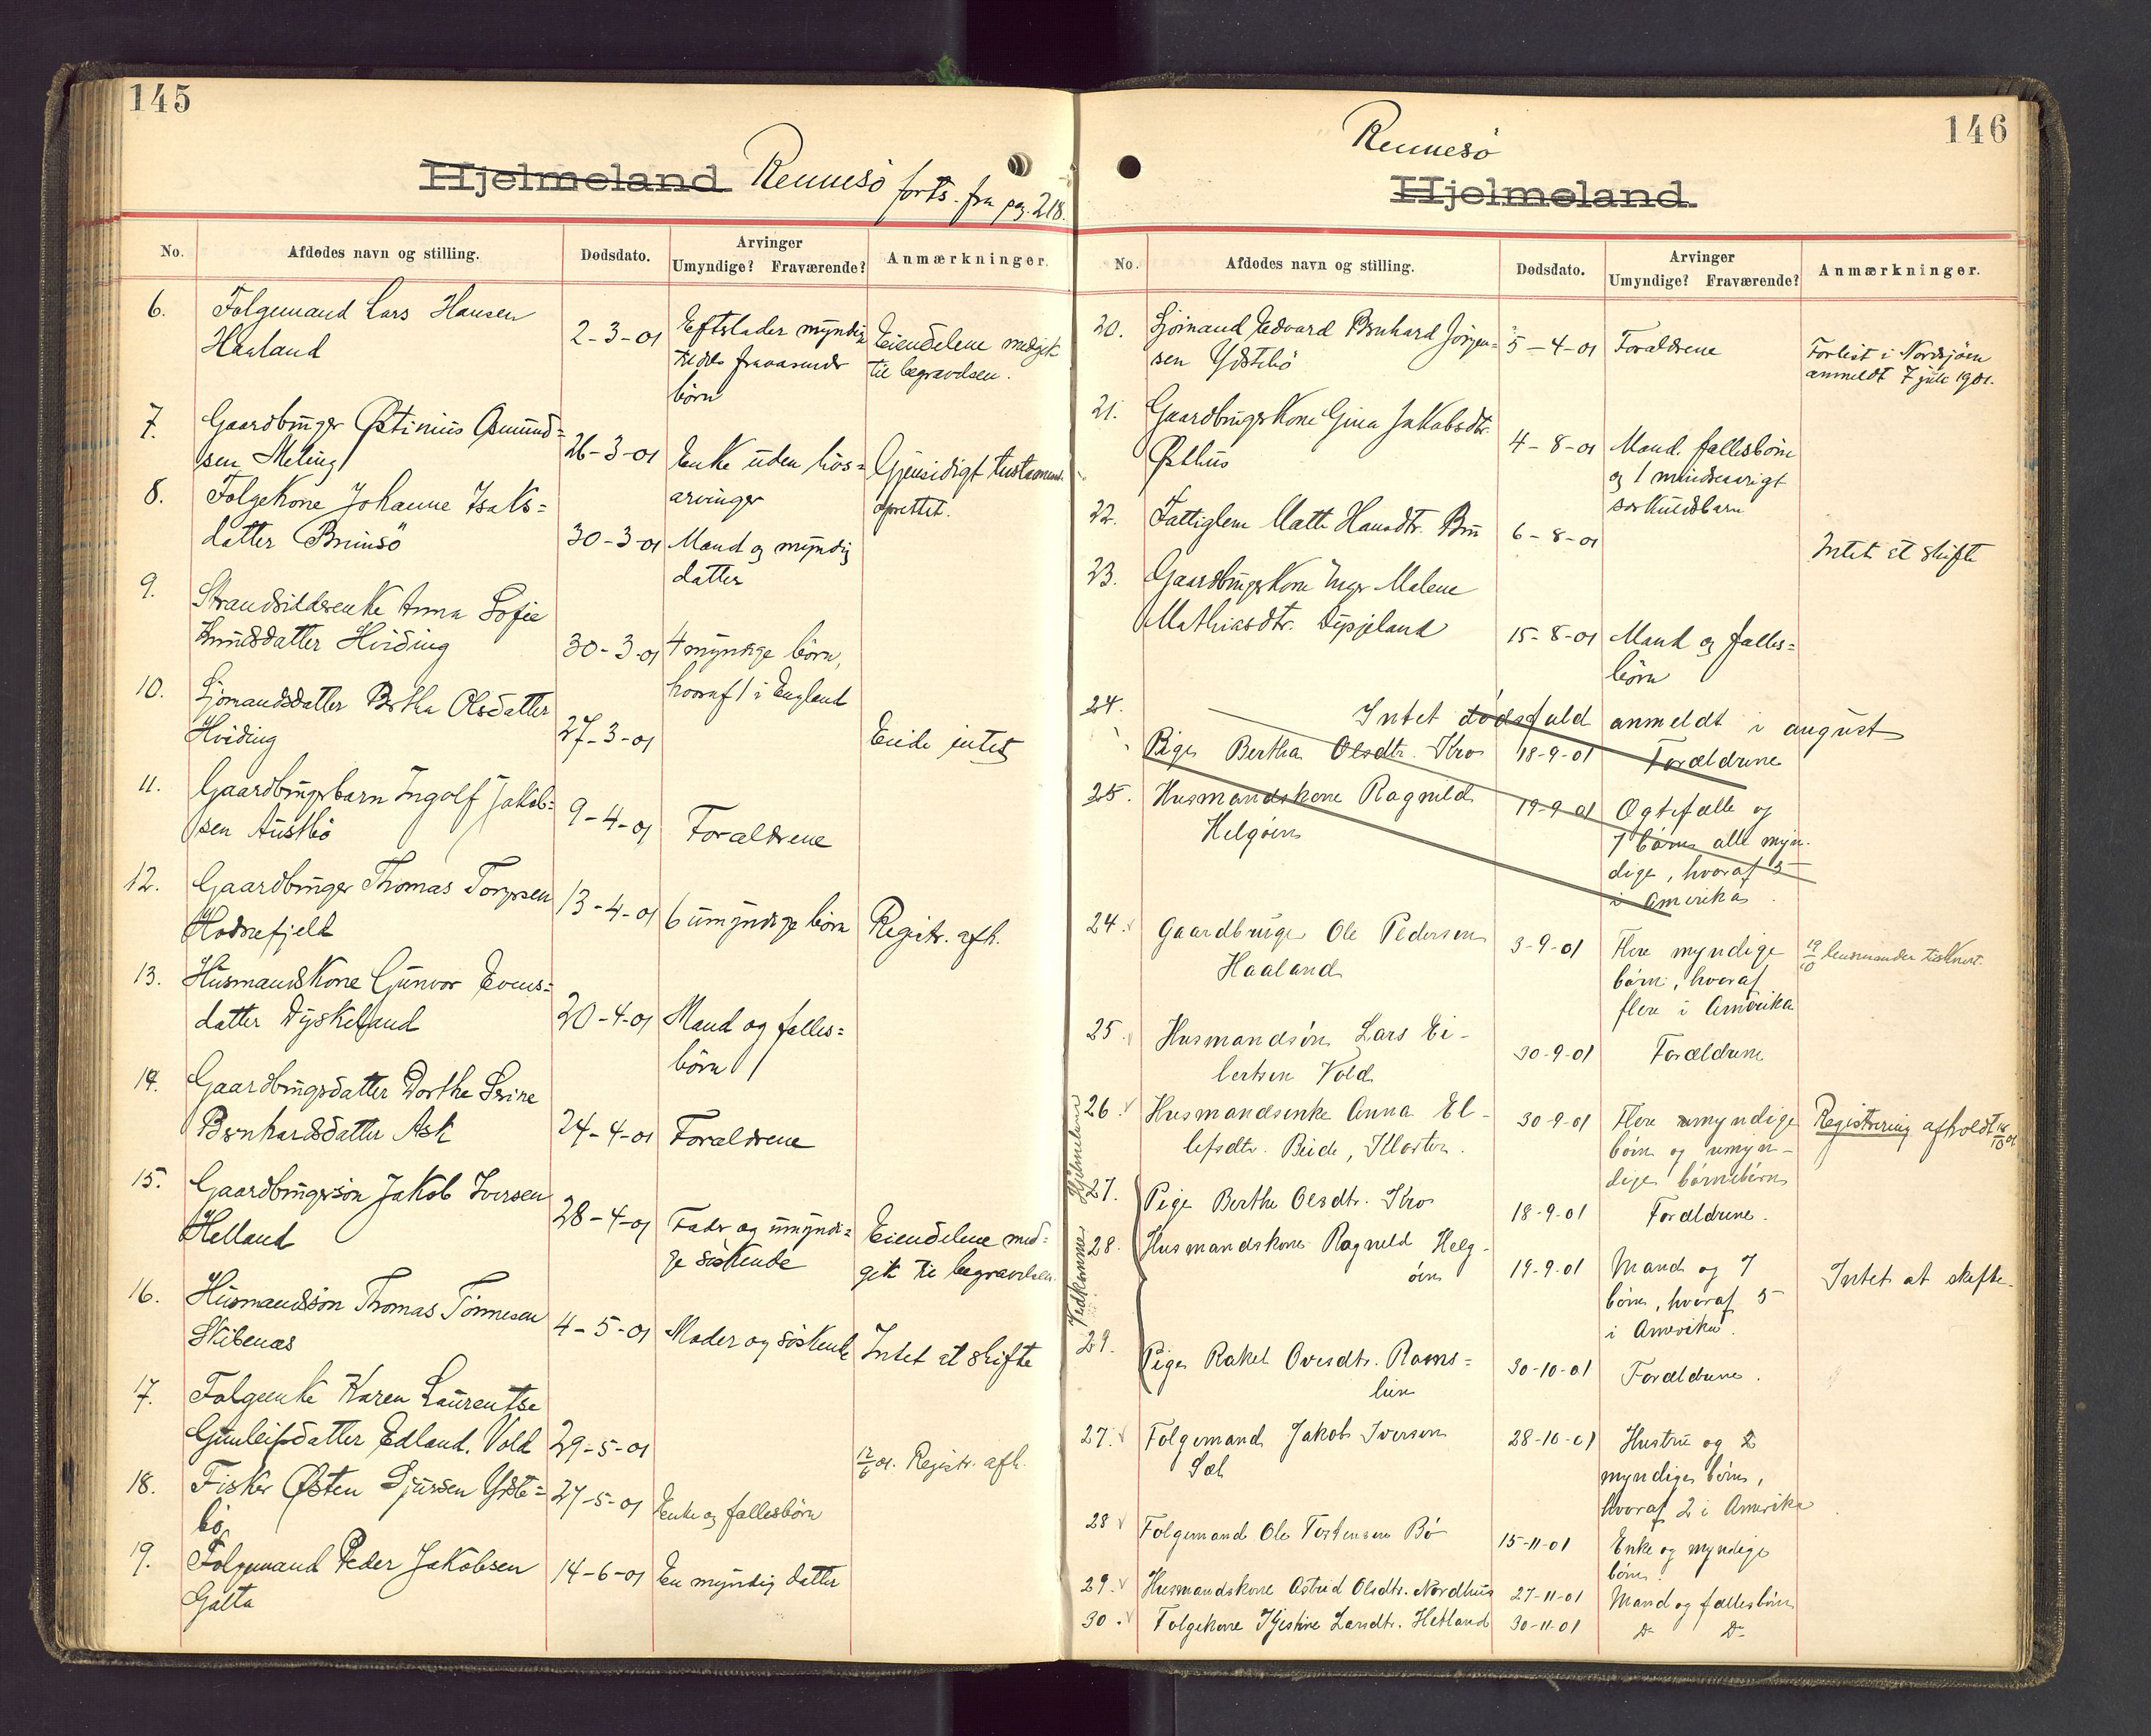 145
Hjelmeland Rennesö forts. fra pag. 218.
No. Afdødes navn og stilling. Dødsdato. Arvinger Umyndige? Fraværende? Anmærkninger.
6. Folgemand Lars Hansen
Haaland 2-3-01 Efterlader myndige
tildels fraværende
børn Eiendelene medgik
til begravelsen.
7. Gaardbruger Østinius Osmund=
sen Meling 26-3-01 Enke uden livs=
arvinger Gjensidigt testament
oprettet.
8. Folgekone Johanne Isaks=
datter Brimsö 30-3-01 Mand og myndig
datter
9. Strandsidderenke Anna Sofie
Knudsdatter Hviding 30-3-01 4 myndige börn,
hvoraf 1 i England
10. Sjömandsdatter Bertha Olsdatter
Hviding 27-3-01 Eiede intet
11. Gaardbrugerbarn Ingolf Jakob=
sen Austbö 9-4-01 Forældrene
12. Gaardbruger Thomas
Hodnefjeld 13-4-01 6 umyndige börn Registr. afh.
13. Husmandskone Gunvor Evens=
datter Dyskeland 20-4-01 Mand og fælles=
börn
14. Gaardbrugerdatter Dorthe Serine
Bernhardsdatter Ask 24-4-01 Forældrene
15. Gaardbrugersön Jakob Iversen
Helland 28-4-01 Fader og umyndi=
ge söskende Eiendelene med=
gik til begravelsen.
16. Husmandssön Thomas Tönnesen
Skibenæs 4-5-01 Moder og söskende Intet at skifte
17. Folgeenke Karen Laurentse
Gunleifsdatter Edland. Vold 29-5-01 12/6 01. Registr. afh.
18. Fisker Østen Sjursen Ydste=
bö 27-5-01 Enke og fællesbörn
19. Folgemand Peder Jakobsen
Galta 14-6-01 En myndig datter
146
Rennesö
Hjelmeland.
No. Afdødes navn og stilling. Dødsdato. Arvinger Umyndige? Fraværende? Anmærkninger.
20. Sjömand Edvard Bernhard Jörgen=
sen Ydstebö 5-4-01 Forældrene Forlist i Nordsjöen
anmeldt 7 juli 1901.
21. Gaardbrugerkone Gina Jakobsdtr.
Østhus 4-8-01 Mand. fællesbörn
og 1 mindreaarigt
særkuldsbarn
22. Fattiglem Malle Hansdtr. Bru 6-8-01 Intet at skifte
23. Gaardbrugerkone Inger Malene
Mathiasdtr. 15-8-01 Mand og fælles=
börn
24. Intet dödsfald anmeldt i august
Pige Bertha Olsdtr. Kro 18-9-01 Forældrene
25. Husmandskone Ragnild
Helgöen 19-9-01 Ogtefælle og
7 börn alle myn-
dige, hvoraf 5
i Amerika
24. Gaardbruger Ole Pedersen
Haaland 3-9-01 Flere myndige
börn, hvoraf
flere i Amerika 19/10 lensmanden tilskrevet.
25. Husmandsön Lars Ei-
lertsen Vold 30-9-01 Forældrene
26. Husmandsenke Anna El-
lefsdtr. Beide, Kloster. 30-9-01 Flere myndige
börn og umyn-
dige börnebörn Registrering afholdt 18/10 01
Vedkommer Hjelmeland
27. Pige Berthe Olsdtr. Kro 18-9-01 Forældrene.
28. Husmandskone Ragnild Helg-
öen 19-9-01 Mand og 7
börn, hvoraf 5
i Amerika. Intet at skifte.
29. Pige Rakel Ovesdtr. Rams=
lien 30-10-01 Forældrene.
27. Folgemand Jakob Iversen
Sæl 28-10-01 Hustru og
myndige börn,
hvoraf 2 i Amerika
28 Folgemand Ole Torstensen Bö 15-11-01 Enke og myndige
börn.
29. Husmandskone Astrid Olsdtr. Nordhus 27-11-01 Mand og fællesbörn
30. Folgekone Kjestine Larsdtr. Hetland 30-11-01 Do Do